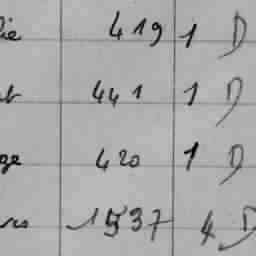 ie 419 1 D
t 441 1 D
ge 420 1 D
rs 1537 4 D